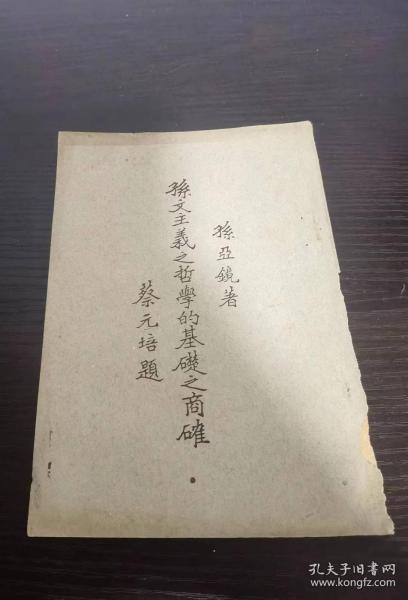 孫亞鏡著
孫文主義之哲學的基礎之商確
蔡元培題
孔夫子旧书网
www.kongfz.com